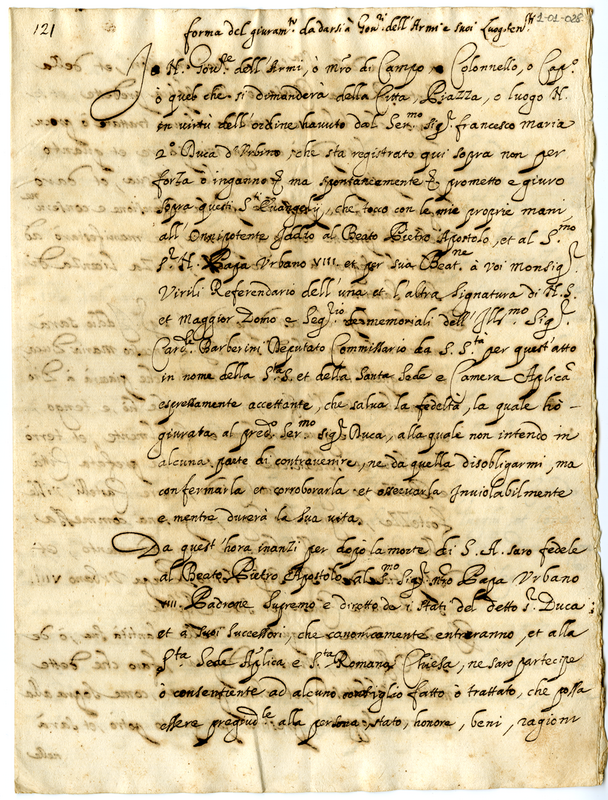 121
forma del giuram.to da darsi à Gov.ri dell'Armi e suoi Luogoten.ti
1-01-028
Io N. Gov.re dell'Armi, ò Mro di Campo, o Colonnello, o Cap.o
ò quel che si dimanderà della Città, Piazza, o luogo N.
in virtù dell'ordine havuto dal Ser.mo Sig.r francesco Maria
2.o Duca d'Urbino, che sta registrato qui sopra non per
forza ò inganno ma spontaneamente prometto e giuro
sopra questi S.ti Evangelij, che tocco con le mie proprie mani
all'Onnipotente Iddio al Beato Pietro Apostolo, et al S.mo
S.r N. Papa Urbano VIII et per sua Beat.ne à voi Monsig.r
Virili Referendario dell'una et l'altra Signatura di N. S.
et Maggior Domo e Seg.rio de memoriali dell'Ill.mo Sig.r
Card.le Barberini Deputato Commissario da S. S.ta per quest'atto
in nome della S.ta S. et della Santa Sede e Camera Aplica
espressamente accettante, che salva la fedeltà, la quale hò
giurata al pred.o Ser.mo Sig.r Duca, alla quale non intendo in
alcuna parte di contravenire, ne da quella disobligarmi, ma
confermarla et corroborarla et osservarla Inviolabilmente
e mentre durerà la sua vita.
Da quest'hora inanzi per dopo la morte di S. A. sarò fedele
al Beato Pietro Apostolo al S.mo Sig.r nro Papa Urbano
VIII. Padrone Supremo e diretto de i Stati del detto S.r Duca
et a suoi Successori, che canonicamente entreranno, et alla
S.ta Sede Aplica e S.ta Romana Chiesa, ne sarò partecipe
ò consentiente ad alcuno consiglio fatto ò trattato, che possa
essere pregiud.le alla persona, stato, honore, beni, ragioni